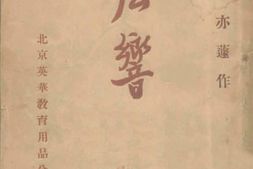 亦蓮作
響
北京英華教育用品公